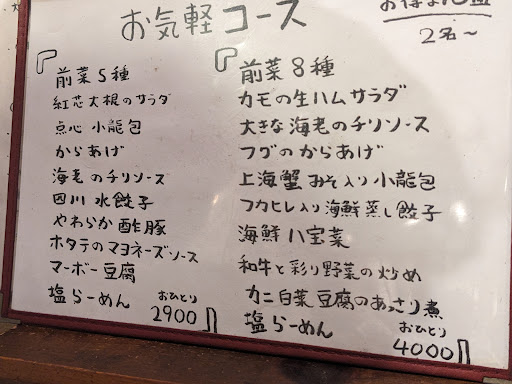 お気軽コース
2名〜
前菜5種
紅芯大根のサラダ
点心 小龍包
からあげ
海老のチリソース
四川 水餃子
やわらか 酢豚
ホタテのマヨネーズソース
マーボー豆腐
塩らーめん
おひとり
2900
前菜8種
カモの生ハムサラダ
大きな海老のチリソース
フグのからあげ
上海蟹みそ入り小龍包
フカヒレ入り海鮮蒸し餃子
海鮮八宝菜
和牛と彩り野菜の炒め
カニ白菜豆腐のあっさり煮
塩らーめん
おひとり
4000